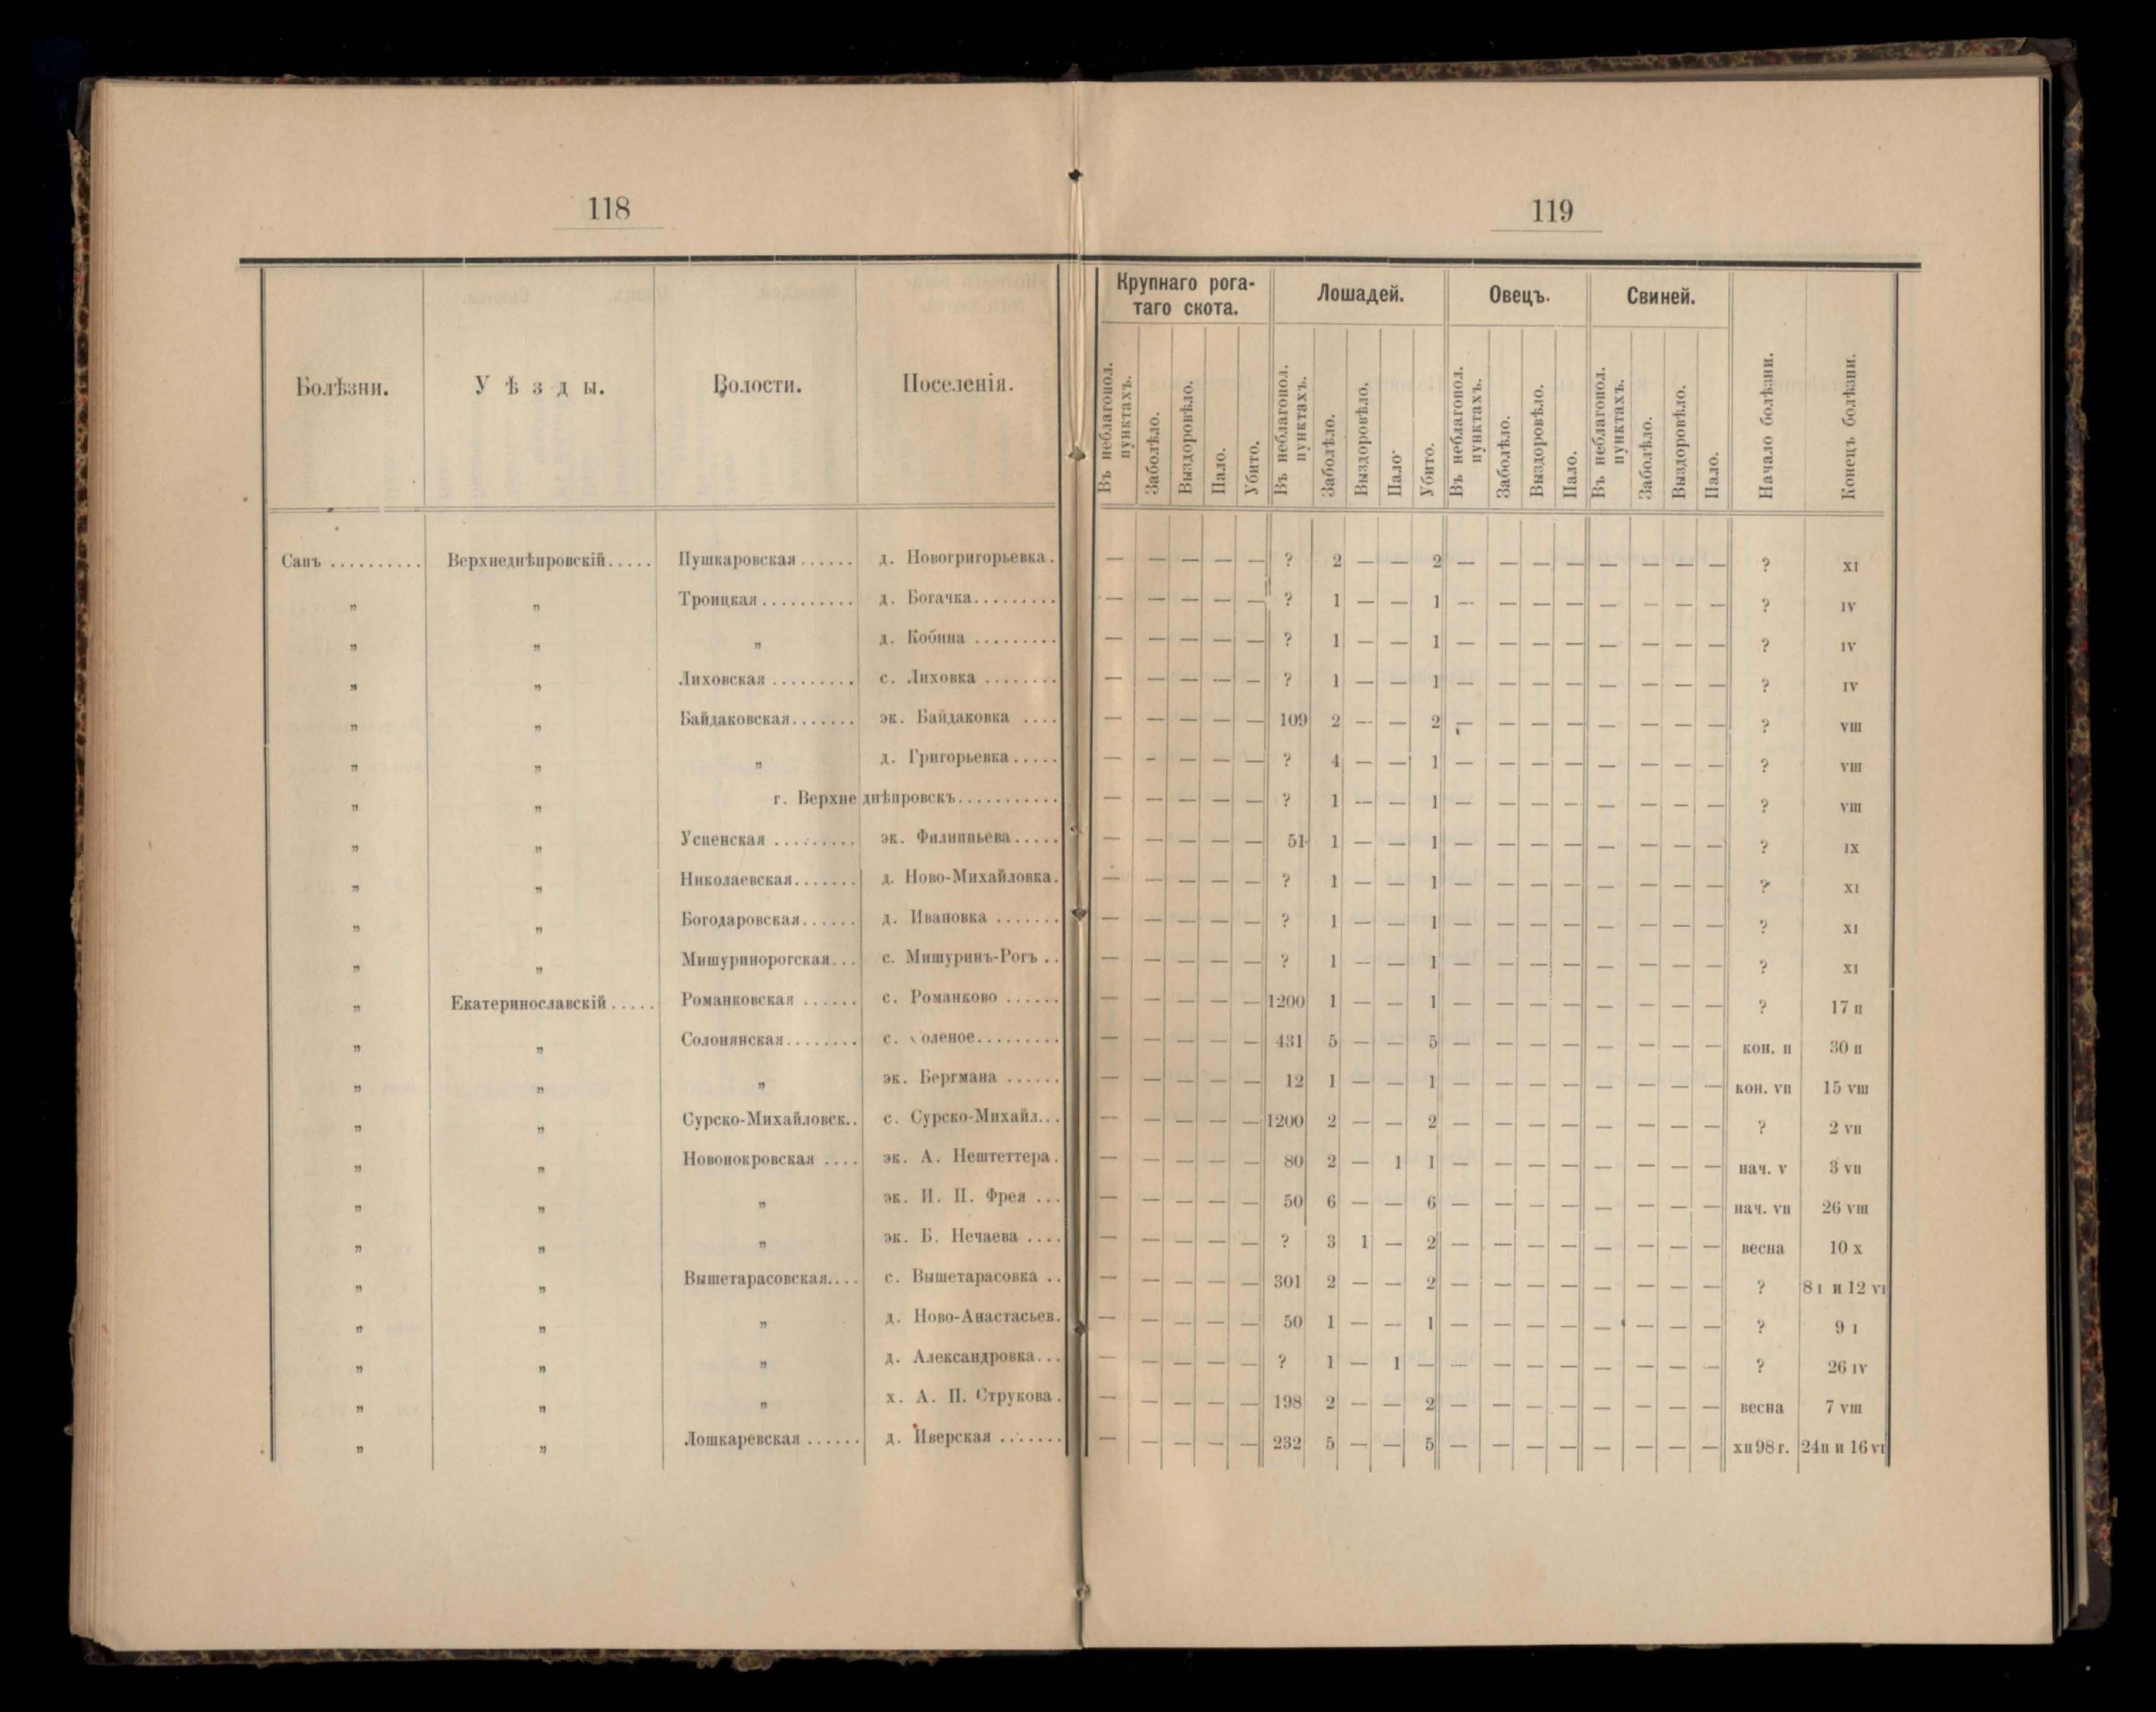 118
119
Болѣзни. Уѣзды. Волости. Поселенія. Крупнаго рогатаго скота. Лошадей. Овецъ. Свиней. Начало болѣзни. Конецъ болѣзни.
Въ неблагопол. пунктахъ. Заболѣло. Выздоровѣло. Пало. Убито. Въ неблагопол. пунктахъ. Заболѣло. Выздоровѣло. Пало. Убито. Въ неблагопол. пунктахъ. Заболѣло. Выздоровѣло. Пало. Въ неблагопол. пунктахъ. Заболѣло. Выздоровѣло. Пало.
Сапъ .......... Верхнеднѣпровскій..... Пушкаровская...... д. Новогригорьевка. — — — — — ? 2 — — 2 — — — — — — — — ? XI
„ „ Троицкая.......... д. Богачка......... — — — — — ? 1 — — 1 — — — — — — — — ? IV
„ „ „ д. Кобина ......... — — — — — ? 1 — — 1 — — — — — — — — ? IV
„ „ Лиховская ......... с. Лиховка ........ — — — — — ? 1 — — 1 — — — — — — — — ? IV
„ „ Байдаковская....... эк. Байдаковка .... — — — — — 109 2 — — 2 — — — — — — — — ? VIII
„ „ „ д. Григорьевка..... — — — — — ? 4 — — 1 — — — — — — — — ? VIII
„ „ г. Верхнеднѣпровскъ........... — — — — — ? 1 — — 1 — — — — — — — — ? VIII
„ „ Успенская ......... эк. Филиппьева..... — — — — — 51 1 — — 1 — — — — — — — — ? IX
„ „ Николаевская....... д. Ново-Михайловка. — — — — — ? 1 — — 1 — — — — — — — — ? XI
„ „ Богодаровская...... д. Ивановка ....... — — — — — ? 1 — — 1 — — — — — — — — ? XI
„ „ Мишуринорогская... с. Мишуринъ-Рогъ .. — — — — — ? 1 — — 1 — — — — — — — — ? XI
„ Екатеринославскій ..... Романковская ...... с. Романково ...... — — — — — 1200 1 — — 1 — — — — — — — — ? 17 II
„ „ Солонянская........ с. оленое......... — — — — — 431 5 — — 5 — — — — — — — — кон. II 30 II
„ „ „ эк. Бергмана ...... — — — — — 12 1 — — 1 — — — — — — — — кон. VII 15 VIII
„ „ Сурско-Михайловск.. с. Сурско-Михайл... — — — — — 1200 2 — — 2 — — — — — — — — ? 2 VII
„ „ Новопокровская .... эк. А. Нештеттера. — — — — — 80 2 — 1 1 — — — — — — — — нач. V 3 VII
„ „ „ эк. И. П. Фрея ... — — — — — 50 6 — — 6 — — — — — — — — нач. VII 26 VIII
„ „ „ эк. Б. Нечаева .... — — — — — ? 3 1 — 2 — — — — — — — — весна 10 X
„ „ Вышетарасовская.... с. Вышетарасовка .. — — — — — 301 2 — — 2 — — — — — — — — ? 8 I и 12 VI
„ „ „ д. Ново-Анастасьев. — — — — — 50 1 — — 1 — — — — — — — — ? 9 I
„ „ „ д. Александровка... — — — — — ? 1 — 1 — — — — — — — — — ? 26 IV
„ „ „ х. А. П. Струкова. — — — — — 198 2 — — 2 — — — — — — — — весна 7 VIII
„ „ Лошкаревская ...... д. Иверская ....... — — — — — 232 5 — — 5 — — — — — — — — XII 98 г. 24 II и 16 VI